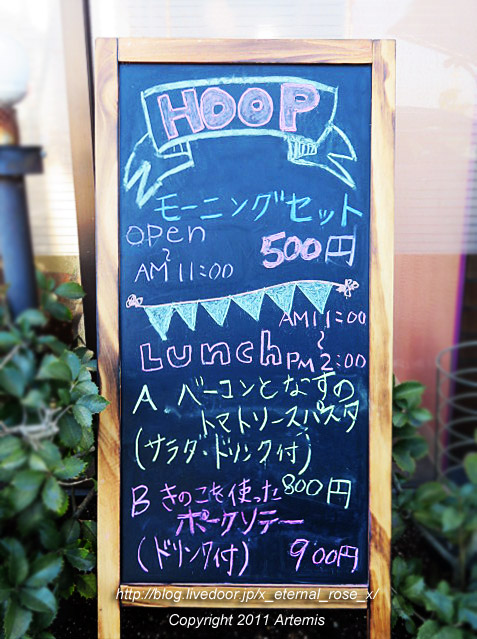 HOOP
モーニングセット
open
500円
~
AM 11:00
AM11:00
~
Lunch PM2:00
A. ベーコンとなすの
トマトソースパスタ
(サラダ・ドリンク付)
800円
B きのこを使った
ポークソテー
(ドリンク付) 900円
http://blog.livedoor.jp/x_eternal_rose_x/
Copyright 2011 Artemis